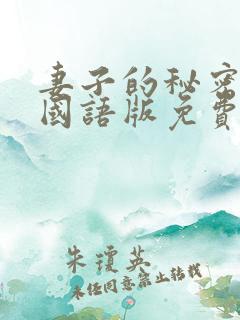 妻子的秘密
國語版免費
朱瓊英
未经同意禁止转载